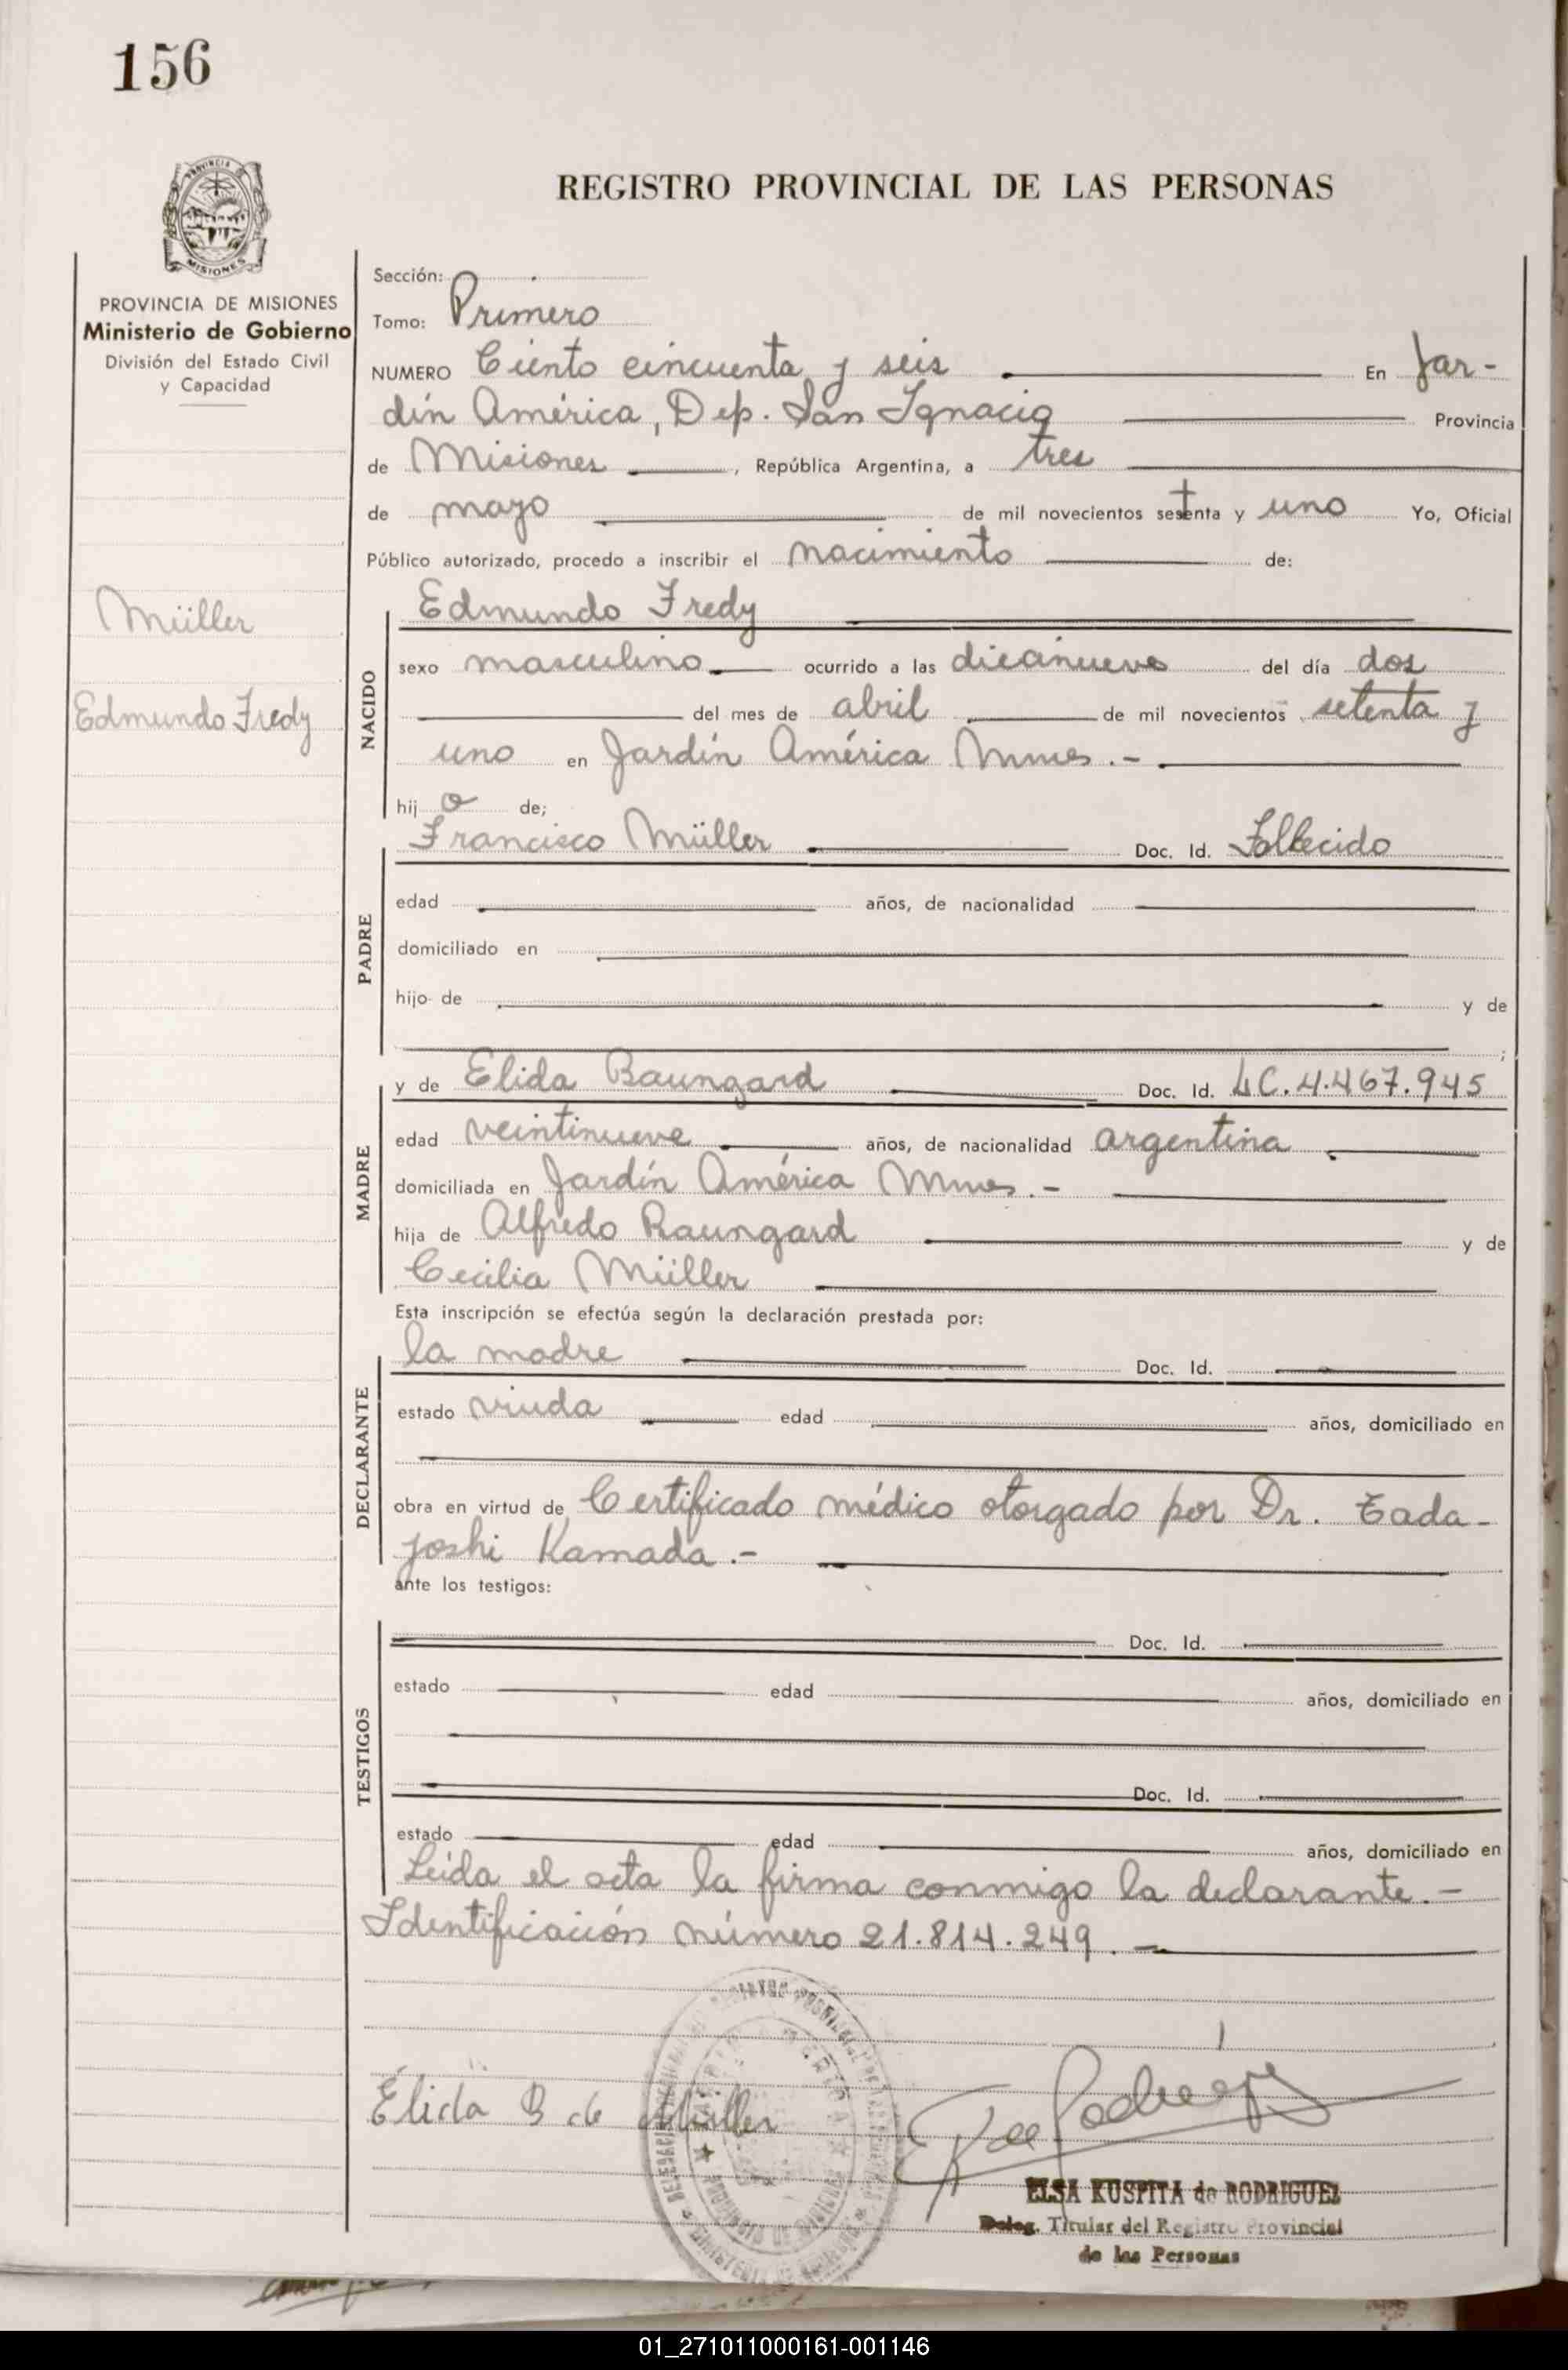 156
REGISTRO PROVINCIAL DE LAS PERSONAS
PROVINCIA
MISIONES
PROVINCIA DE MISIONES
Ministerio de Gobierno
División del Estado Civil
y Capacidad
Müller
Edmundo Fredy
Sección:
Tomo: Primero
NUMERO Ciento cincuenta y seis En Jar-
dín América, Dep. San Ignacio Provincia
de Misiones, República Argentina, a tres
de mayo de mil novecientos setenta y uno Yo, Oficial
Público autorizado, procedo a inscribir el nacimiento de:
Edmundo Fredy
NACIDO
sexo masculino ocurrido a las diecinueve del día dos
del mes de abril de mil novecientos setenta y
uno en Jardín América Mnes.-
hij o de;
PADRE
Francisco Müller Doc. Id. Fallecido
edad años, de nacionalidad
domiciliado en
hijo de y de
;
MADRE
y de Elida Baungard Doc. Id. LC.4.467.945
edad veintinueve años, de nacionalidad argentina
domiciliada en Jardín América Mnes.-
hija de Alfredo Baungard y de
Cecilia Müller
Esta inscripción se efectúa según la declaración prestada por:
DECLARANTE
la madre Doc. Id.
estado viuda edad años, domiciliado en
obra en virtud de Certificado médico otorgado por Dr. Tada-
joshi Kamada.-
ante los testigos:
TESTIGOS
Doc. Id.
estado edad años, domiciliado en
Doc. Id.
estado edad años, domiciliado en
Leida el acta la firma conmigo la declarante.-
Identificación número 21.814.249.-
Elida B de Müller
ELSA KUSPITA de RODRIGUEZ
Deleg. Titular del Registro Provincial
de las Personas
01_271011000161-001146